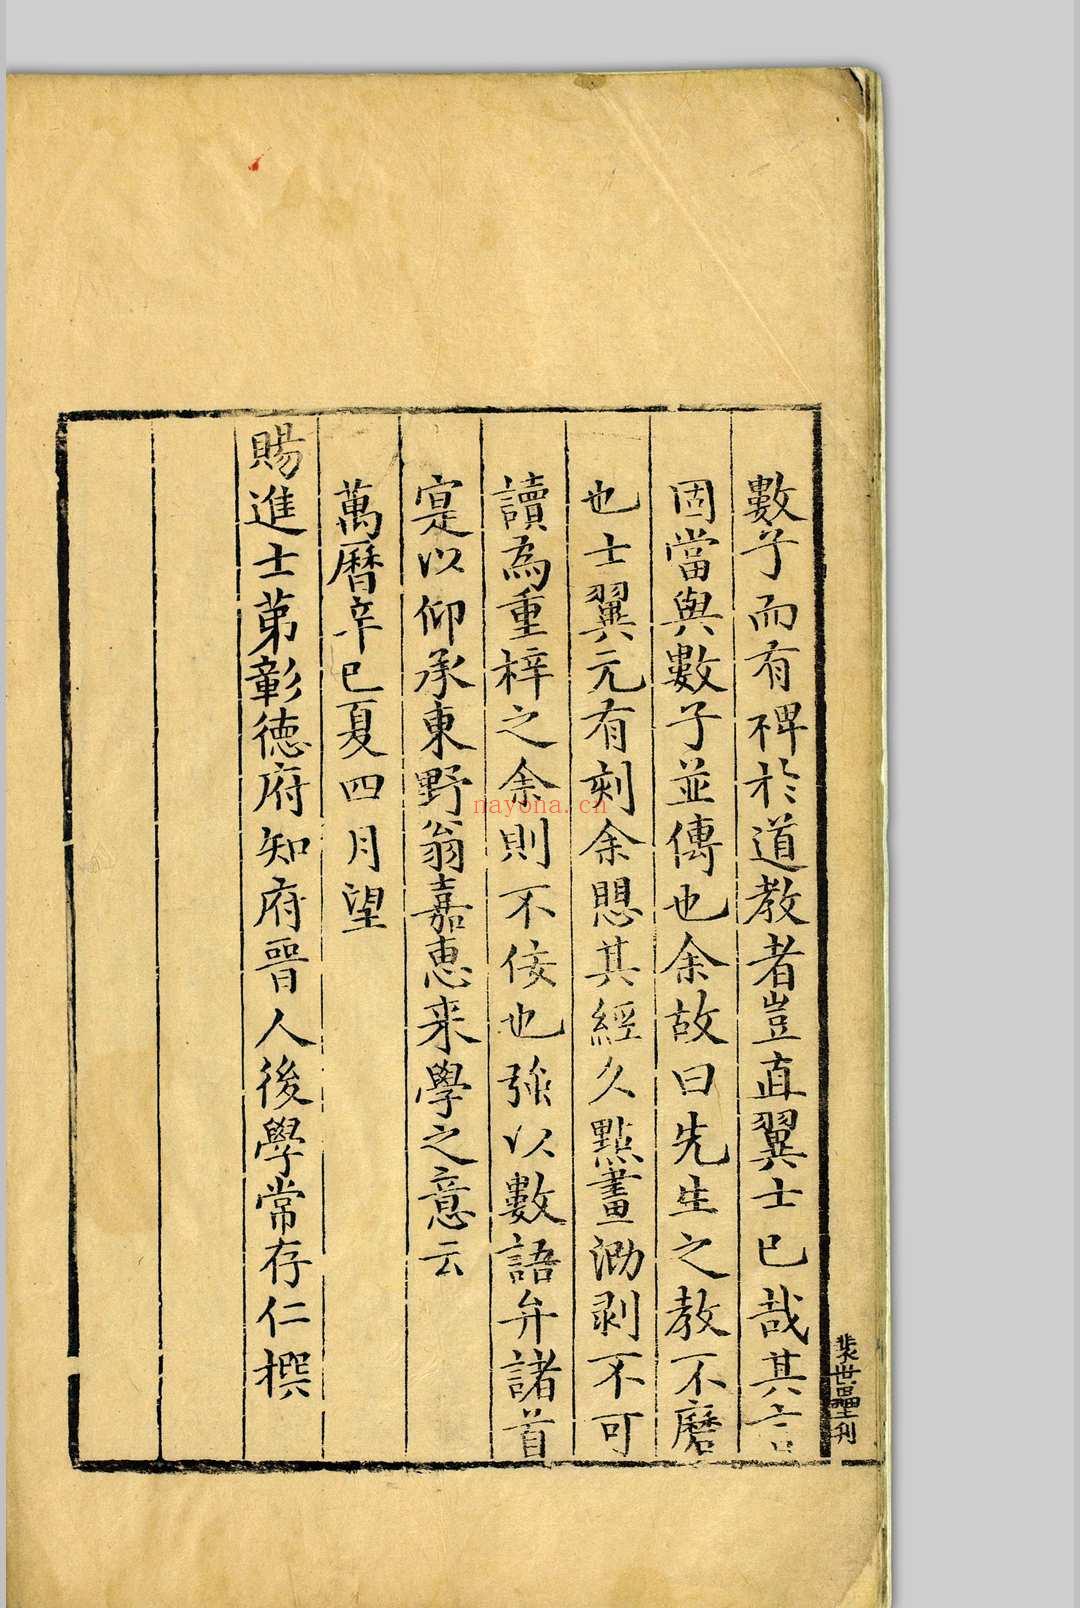 數子而有裨於道教者豈直翼士已哉其言
固當與數子並傳也余故曰先生之教不磨
也士翼元有刻余愳其經久點畫泐剥不可
讀為重梓之余則不佞也強以數語弁諸首
寔以仰承東野翁嘉惠来學之意云
萬曆辛巳夏四月望
賜進士第彰德府知府晉人後學常存仁撰
裴世壘刋
nayona.cn